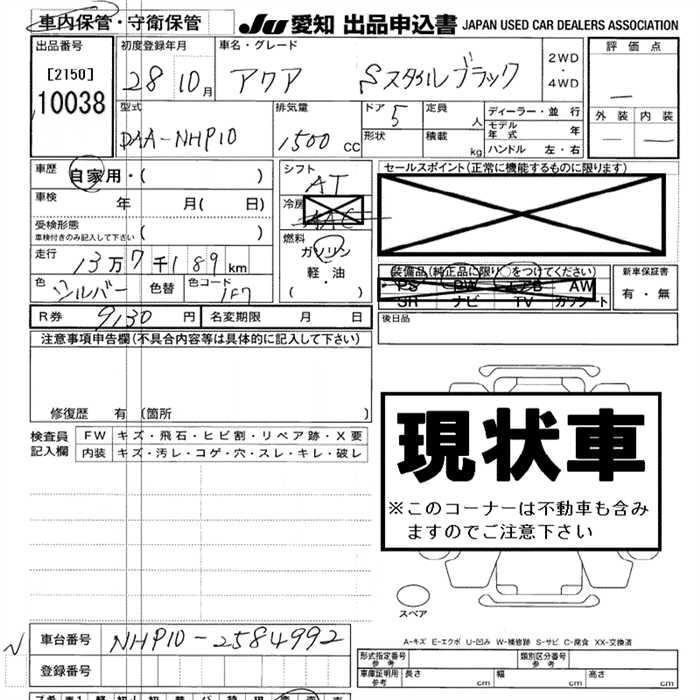 車内保管・守衛保管 JU 愛知 出品申込書 JAPAN USED CAR DEALERS ASSOCIATION
出品番号 初度登録年月 車名・グレード 2WD・4WD 評価点
[2150] 10038 28 10月 アクア Sスタイルブラック
外装 内装
型式 排気量 ドア 5 定員 人 ディーラー・並行
モデル年式 年
DAA-NHP10 1500 cc 形状 積載 kg ハンドル 左・右
車歴 自家用・( ) シフト AT セールスポイント(正常に機能するものに限ります)
車検 年 月( 日) 冷房 AAC
受検形態
車検付きのみ記入して下さい 燃料 ガソリン
走行 13万7千189km 軽・油
装備品(純正品に限り○をつけてください) 新車保証書
PS PW エアB AW 有・無
SR ナビ TV カワシート
色 シルバー 色替 色コード 1F7 ( ・ )
R券 9,130 円 名変期限 月 日 後日品
注意事項申告欄(不具合内容等は具体的に記入して下さい)
修復歴 有(箇所 )
検査員記入欄 FW キズ・飛石・ヒビ割・リペア跡・X要
内装 キズ・汚レ・コゲ・穴・スレ・キレ・破レ
現状車
※このコーナーは不動車も含み
ますのでご注意下さい
スペア
A-キズ E-エクボ U-凹み W-補修跡 S-サビ C-腐食 XX-交換済
車台番号 NHP10-2584992
登録番号
形式指定番号 参考 類別区分番号 参考
車庫証明用 参考 長さ cm 幅 cm 高さ cm